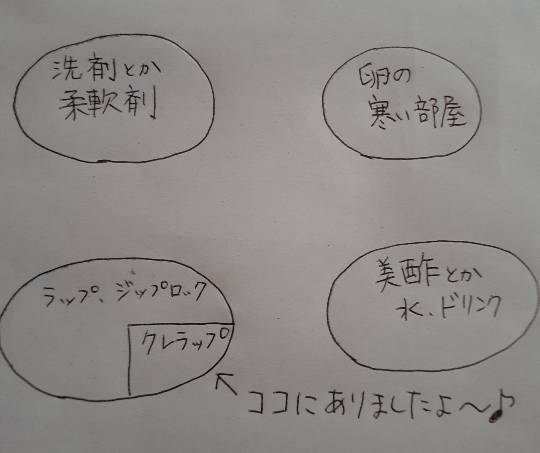 洗剤とか
柔軟剤
卵の
寒い部屋
ラップ、ジップロック
クレラップ
美酢とか
水、ドリンク
ココにありましたよ～♪